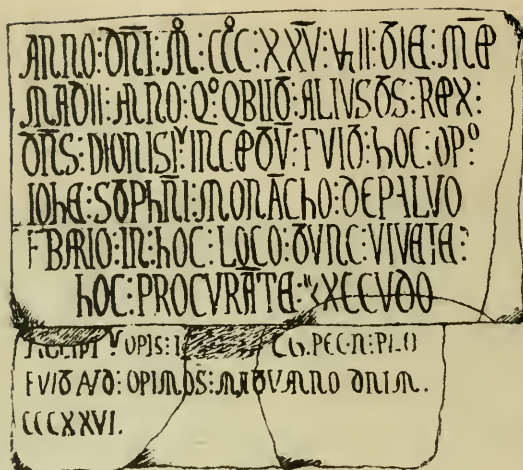 ANNO: DÑI: M̊: CC̊C: XXV̄: VII: DIE: M̄EP
MADII: ANNO: Qº QBLID: ALIVS DS: REX:
DÑS: DIONISIꝰ INCEPDV̄: FVID: hOC: OPº
IOhE: SDPhÑI: MONAChO: DEPALVO
FBARIO: IN: hOC: LOCO: DVNC: VIVETE:
hOC: PROCVRĀTE: XECCVDO
OPIS:
FVID A/D: OPIMDS: MADV ANNO DNI M.
CCCXXVI.